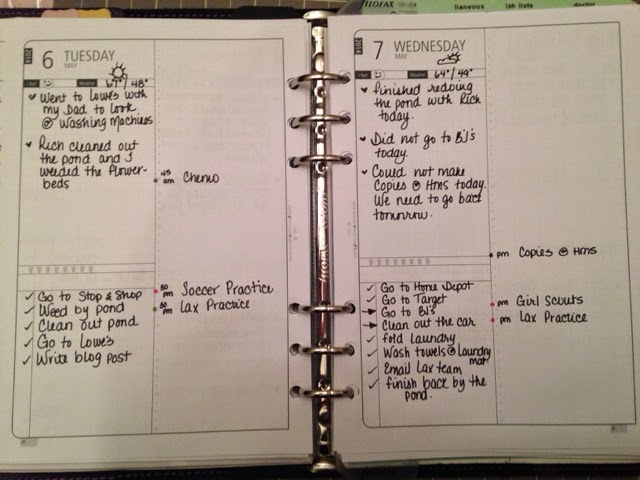 FILOFAX
llaneous
ish lists
doctor
2014
6 TUESDAY
MAY
Weather
67° / 48°
Went to Lowe's with
my Dad to look
@ Washing Machines
Rich cleaned out
the pond and I
weeded the flower-
beds
45
am
Chemo
30
pm
Soccer Practice
pm
Lax Practice
Go to Stop & Shop
Weed by pond
Clean out pond
Go to Lowe's
Write blog post
2014
7 WEDNESDAY
MAY
Weather
64° / 49°
Finished redoing
the pond with Rich
today.
Did not go to BJ's
today.
Could not make
Copies @ HMS today.
We need to go back
tomorrow.
pm
Copies @ HMS
Go to Home Depot
Go to Target
Go to BJ's
Clean out the car
fold laundry
Wash towels @ laundry
mat
Email Lax team
finish back by the
pond.
pm
Girl Scouts
pm
Lax Practice